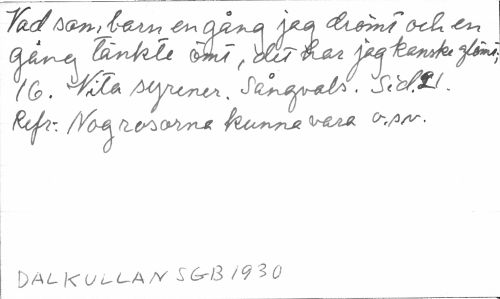 Vad som barn en gång jag drömt och en
gång tänkte ömt, det har jag kanske glömt,
16. Vita syrener. Sångvals. Sid. 21.
Refr: Nog rosorna kunna vara o.s.v.
DALKULLAN SGB 1930